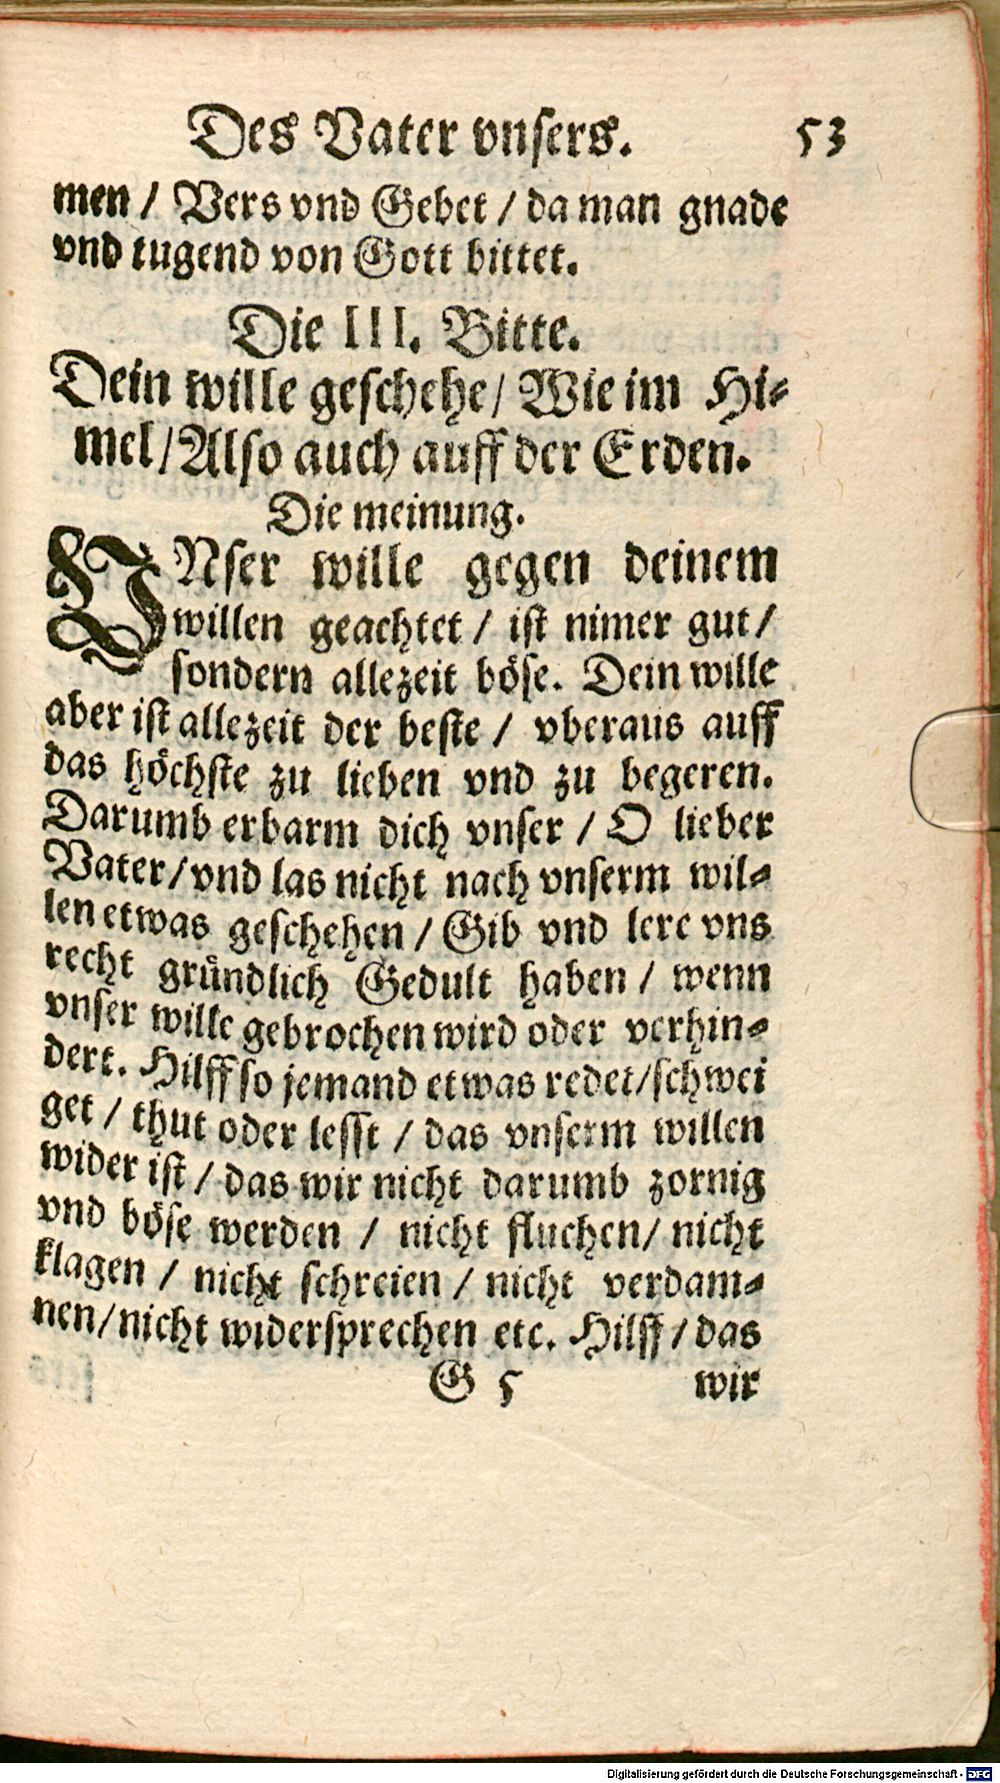 Des Vater vnsers. 53
men / Vers vnd Gebet / da man gnade
vnd tugend von Gott bittet.
Die III. Bitte.
Dein wille geschehe/ Wie im Hi-
mel/Also auch auff der Erden.
Die meinung.
VNser wille gegen deinem
willen geachtet / ist nimer gut/
sondern allezeit böse. Dein wille
aber ist allezeit der beste / vberaus auff
das höchste zu lieben vnd zu begeren.
Darumb erbarm dich vnser / O lieber
Vater/vnd las nicht nach vnserm wil-
len etwas geschehen / Gib vnd lere vns
recht gründlich Gedult haben / wenn
vnser wille gebrochen wird oder verhin-
dert. Hilff so jemand etwas redet/schwei
get / thut oder lesst / das vnserm willen
wider ist / das wir nicht darumb zornig
vnd böse werden / nicht fluchen/ nicht
klagen / nicht schreien / nicht verdam-
nen/nicht widersprechen etc. Hilff / das
G 5 wir
Digitalisierung gefördert durch die Deutsche Forschungsgemeinschaft - DFG